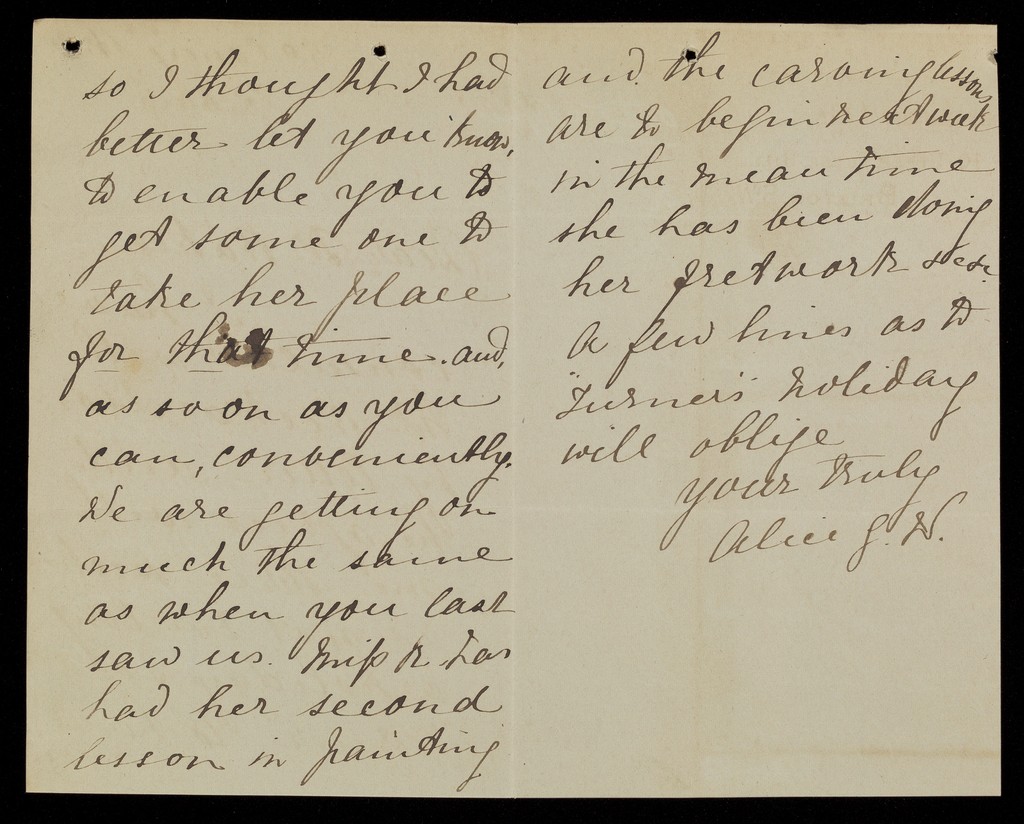 so I thought I had
better let you know,
to enable you to
get some one to
take her place
for that time. and,
as soon as you
can, conveniently.
We are getting on
much the same
as when you last
saw us. Miss K has
had her second
lesson in painting
and. the carving lessons
are to begin next week
in the mean time
she has been doing
her fretwork &c &c.
A few lines as to
"Turner's" holiday
will oblige
yours truly
Alice J. W.